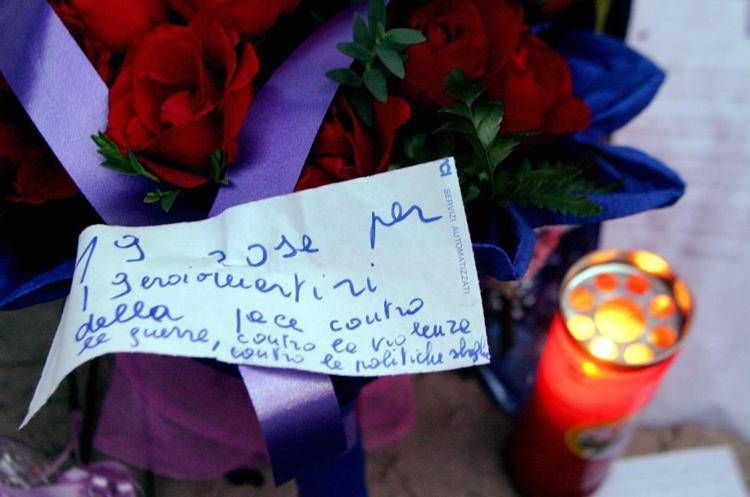 19 rose per
19 eroi o martiri
della pace contro
le guerre, contro la violenza
contro le politiche
SERVIZI AUTOMATIZZATI